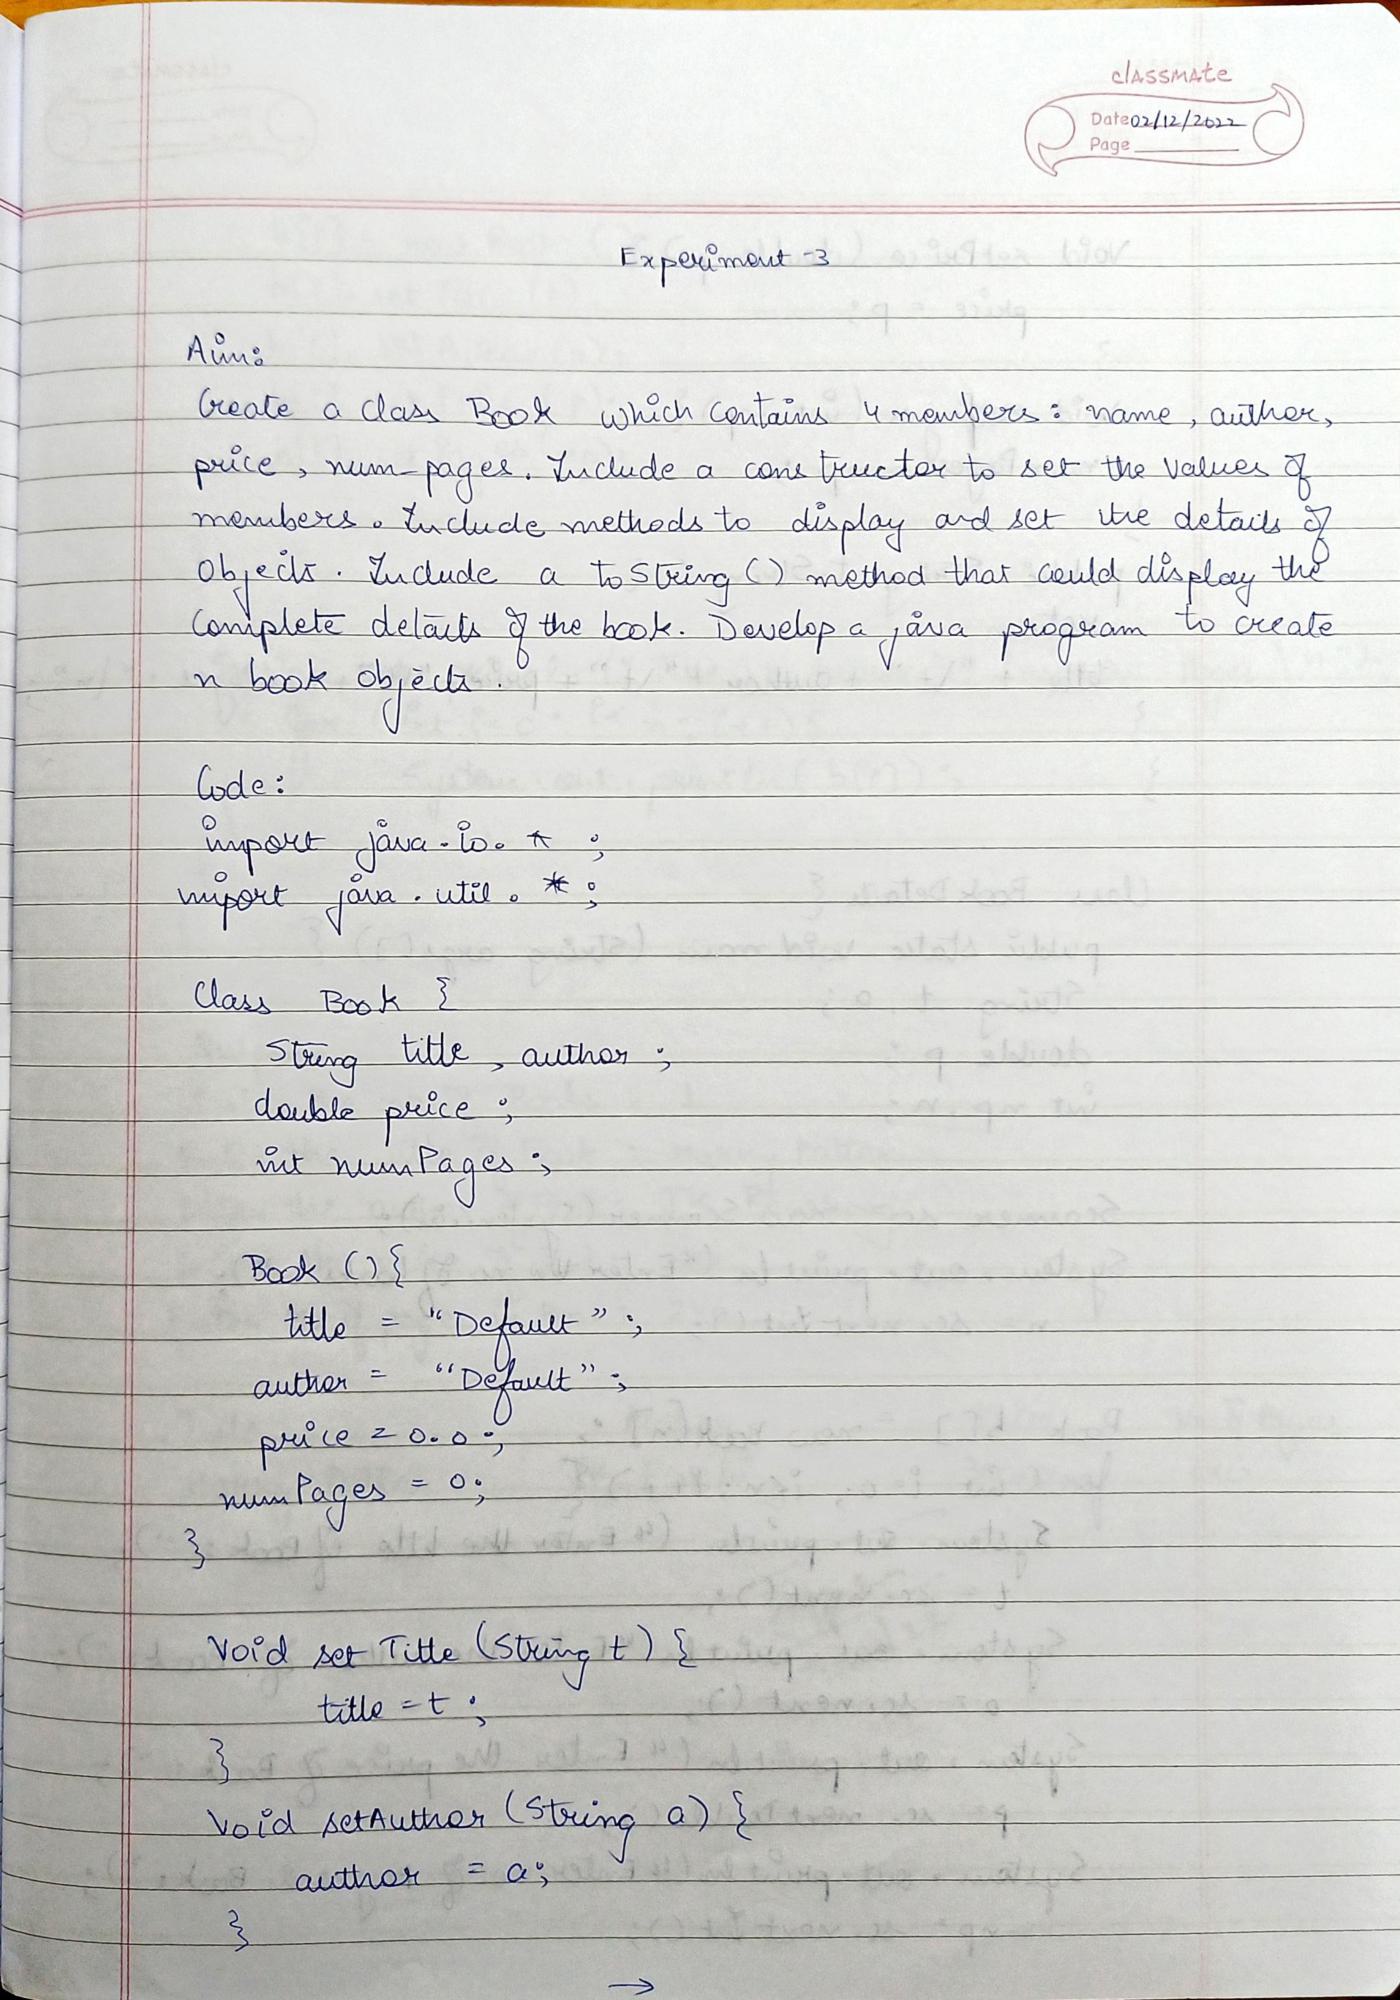 classmate
Date 02/12/2022
Page
Experiment -3
Aim:
Create a class Book which contains 4 members: name, author,
price, num-pages. Include a constructor to set the values of
members. Include methods to display and set the details of
objects. Include a toString() method that could display the
complete details of the book. Develop a java program to create
n book objects.
Code:
import java.io.*;
import java.util.*;
Class Book {
String title, author;
double price;
int numPages;
Book () {
title = "Default";
author = "Default";
price = 0.0;
numPages = 0;
}
Void set Title (String t) {
title = t;
}
Void setAuthor (String a) {
author = a;
}
→